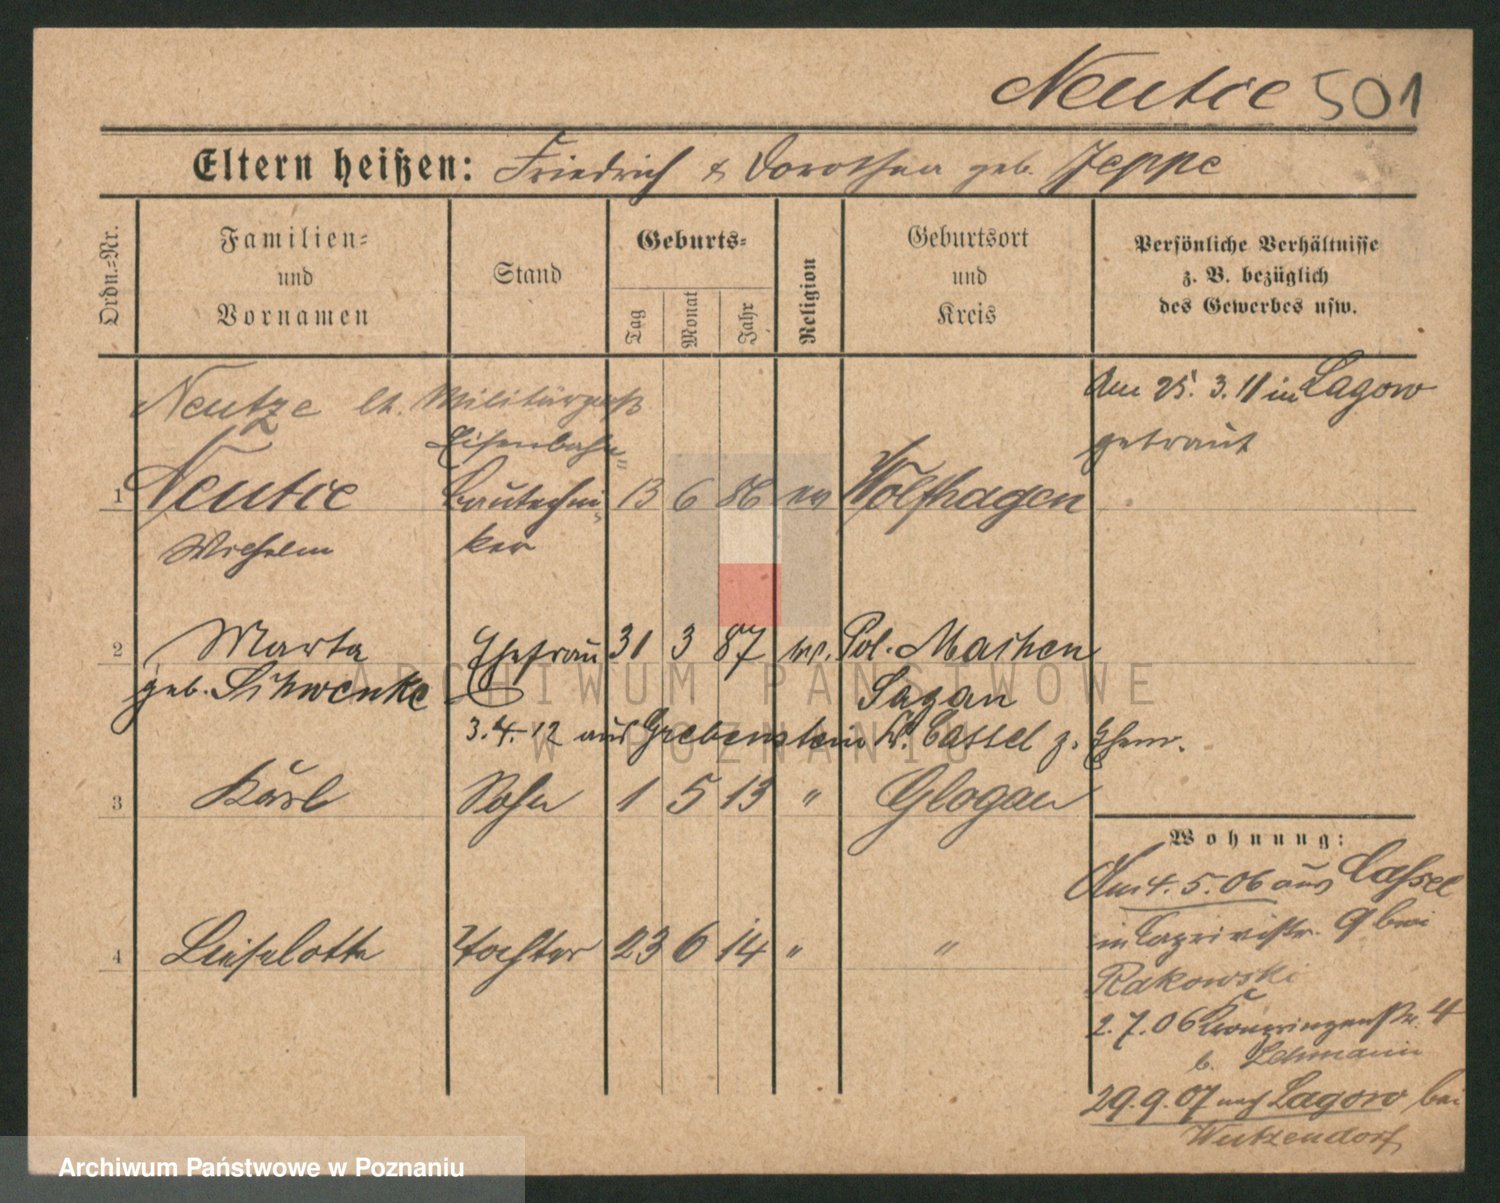 Neutze 501
Eltern heißen: Friedrich & Dorothea geb. Jeppe
Ordn.-Nr.
Familien- und Vornamen
Stand
Geburts-
Tag
Monat
Jahr
Religion
Geburtsort und Kreis
Persönliche Verhältnisse z. B. bezüglich des Gewerbes usw.
Neutze lt. Militärpaß
Am 25. 3. 11 in Lagow
getraut
Eisenbahn-
1 Neutze Bautechni- 13 6 86 ev Wolfhagen
Wilhelm ker
2 Marta Ehefrau 31 3 87 ev. Pol. Machen
geb. Schwenke Sagan
3. 4. 12 aus Grebenstein Kr. Cassel z. Ehem.
3 Karl Sohn 1 5 13 " Glogau
4 Lieselotte Tochter 23 6 14 " "
Wohnung:
Am 4. 5. 06 aus Cassel
in Caprivistr. 9 bei
Rakowski
2. 7. 06 Kronprinzenstr. 4
b. Lehmann
29. 9. 07 nach Lagow bei
Wutzendorf
ARCHIWUM PAŃSTWOWE
W POZNANIU
Archiwum Państwowe w Poznaniu